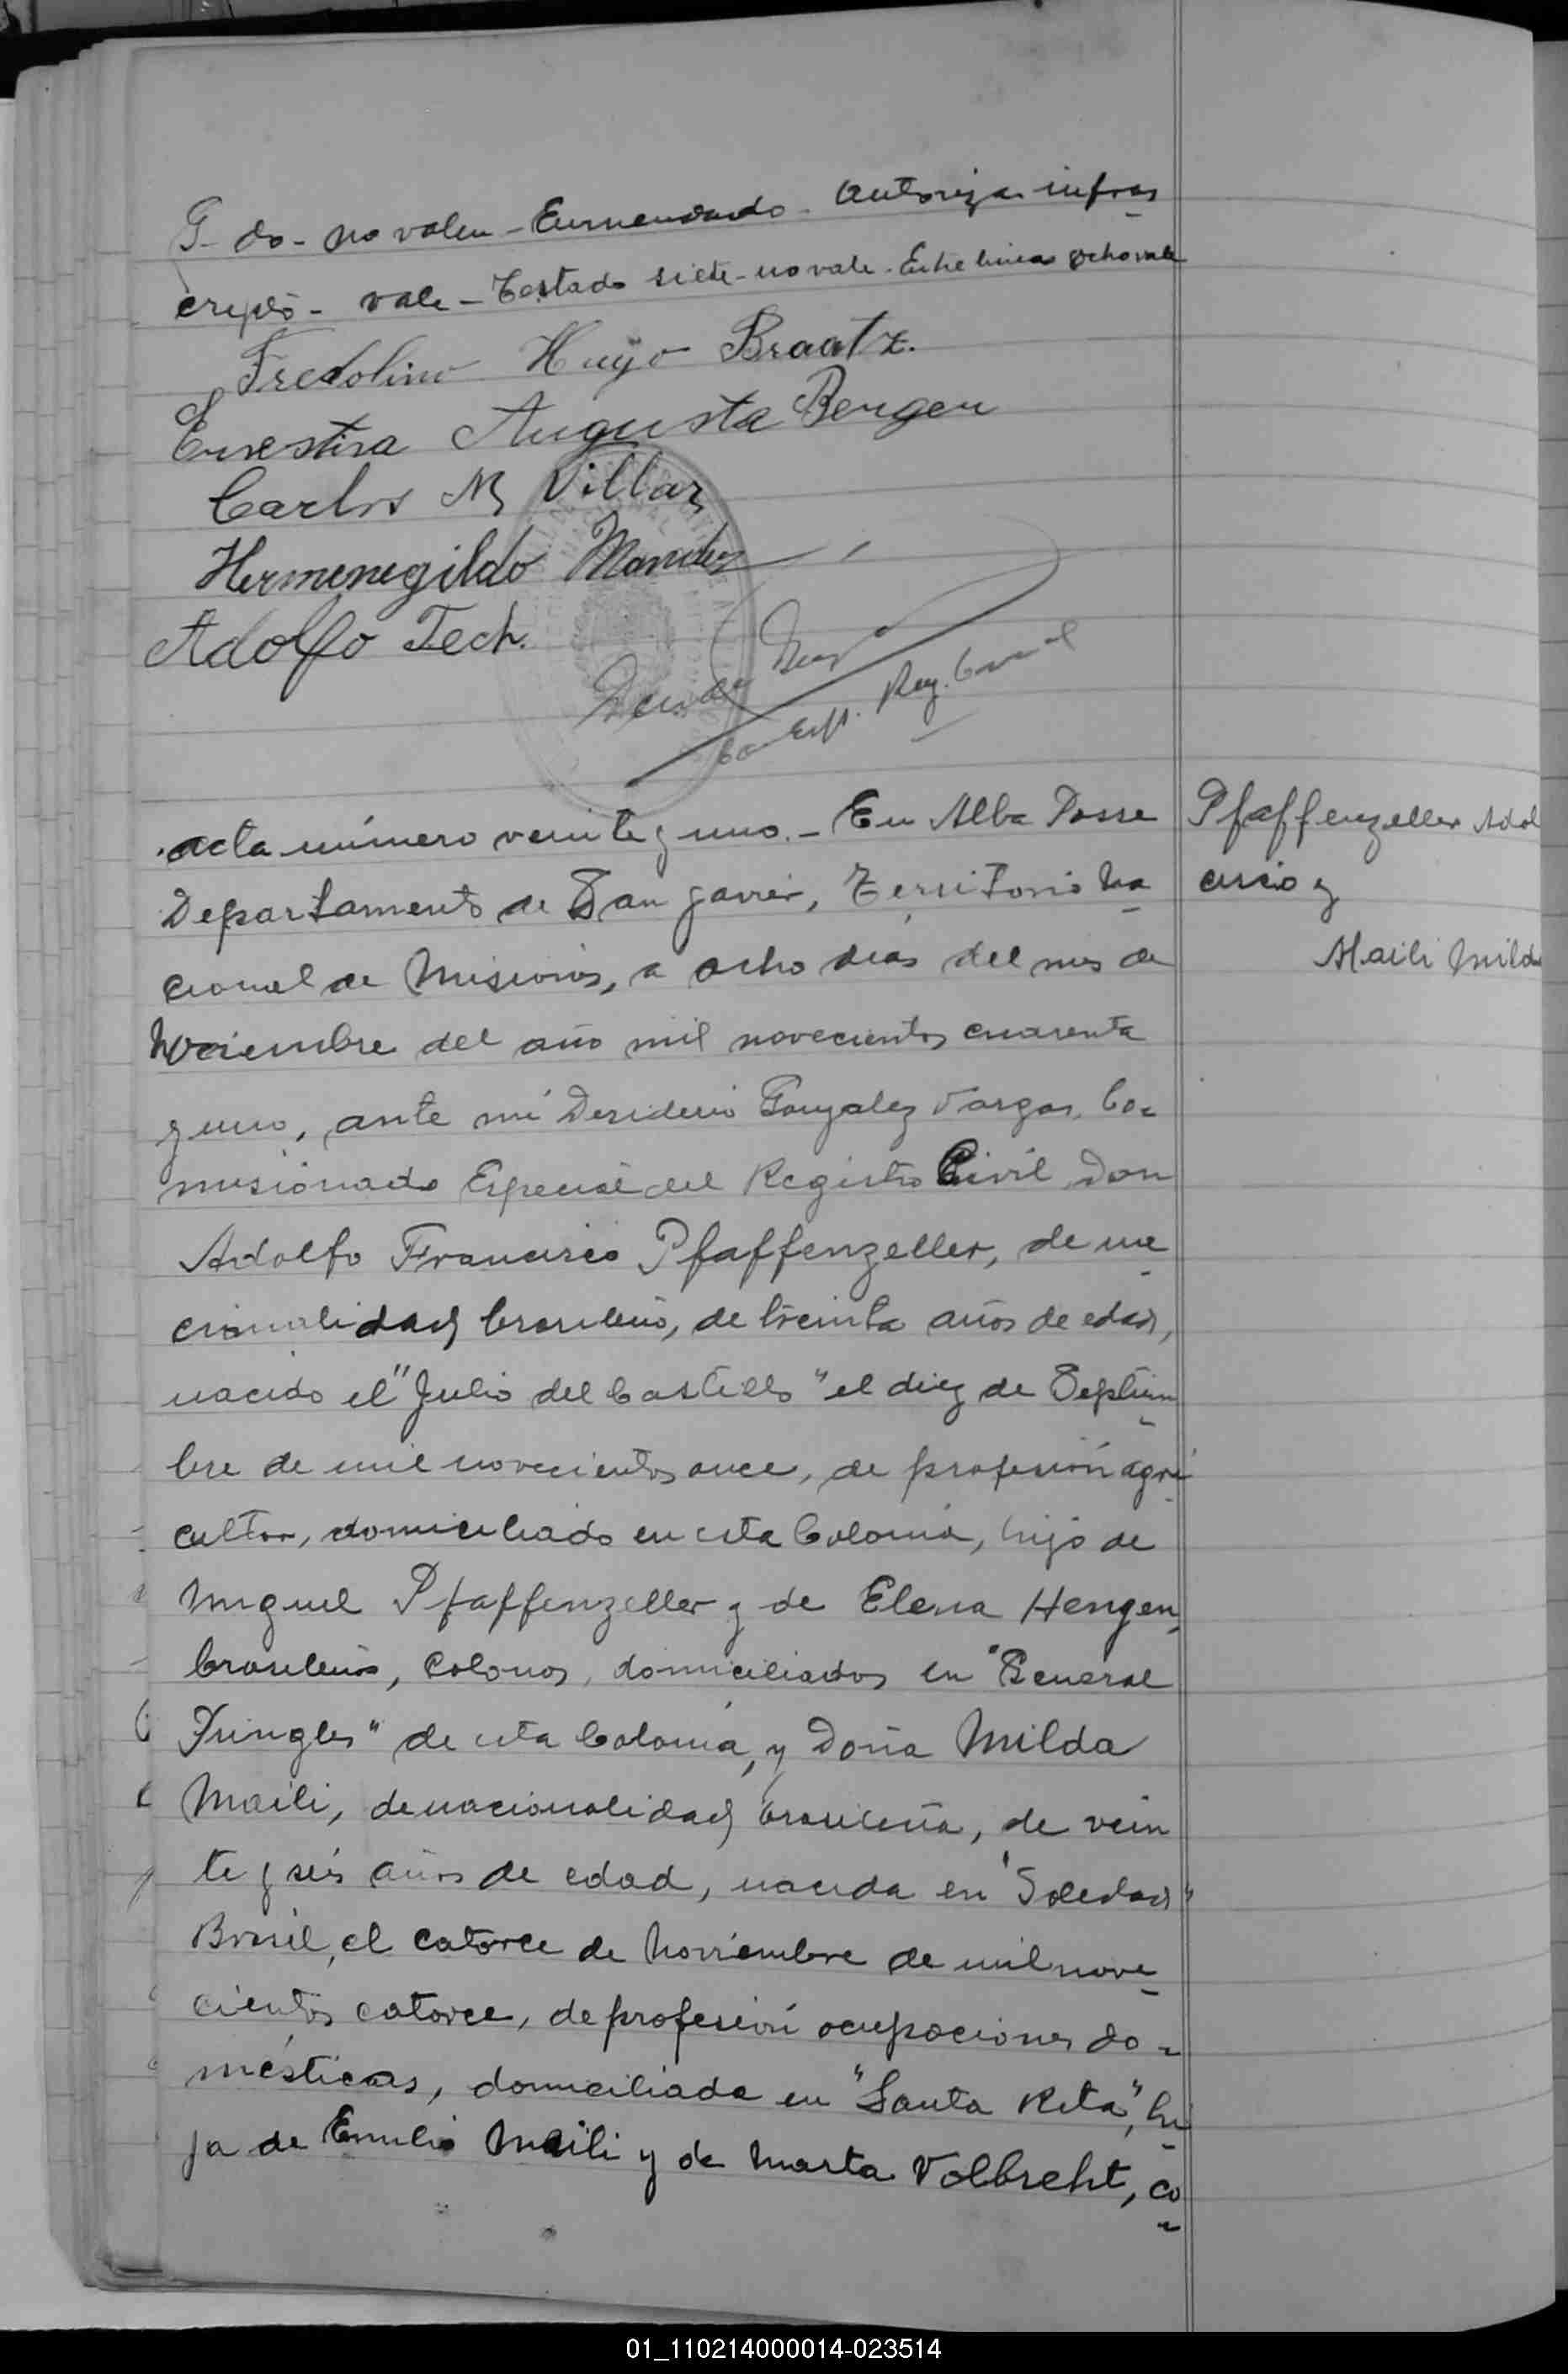 G- do- no valen - Enmendado - autoriza infras
cripto - vale - Testado siete - no vale. Entre lineas ocho vale
Fredolino Hugo Braatz.
Ernestina Augusta Bergen
Carlos M. Villar
Hermenegildo Mandez
Adolfo Tech.
Reg. Civil
Acta número veinte y uno. - En Alba Posse
Departamento de San Javier, Territorio Na
cional de Misiones, a ocho dias del mes de
Noviembre del año mil novecientos cuarenta
y uno, ante mí Desiderio Gonzalez Vargas, Co=
misionado Especial del Registro Civil, Don
Adolfo Francisco Pfaffenzeller, de na
cionalidad brasileño, de treinta años de edad,
nacido el "Julio del Castillo" el diez de Septiem
bre de mil novecientos once, de profesión agri
cultor, domiciliado en esta Colonia, hijo de
Miguel Pfaffenzeller y de Elena Hengen,
brasileños, colonos, domiciliados en "General
Pringles" de esta Colonia, y Doña Milda
Maili, de nacionalidad brasileña, de vein
te y seis años de edad, nacida en "Soledad"
Brasil, el catorce de Noviembre de mil nove
cientos catorce, de profesión ocupaciones do=
mésticas, domiciliada en "Santa Rita", hi
ja de Emilio Maili y de Marta Volbrecht, co
Pfaffenzeller Adol
cisco y
Maili Milda
01_110214000014-023514